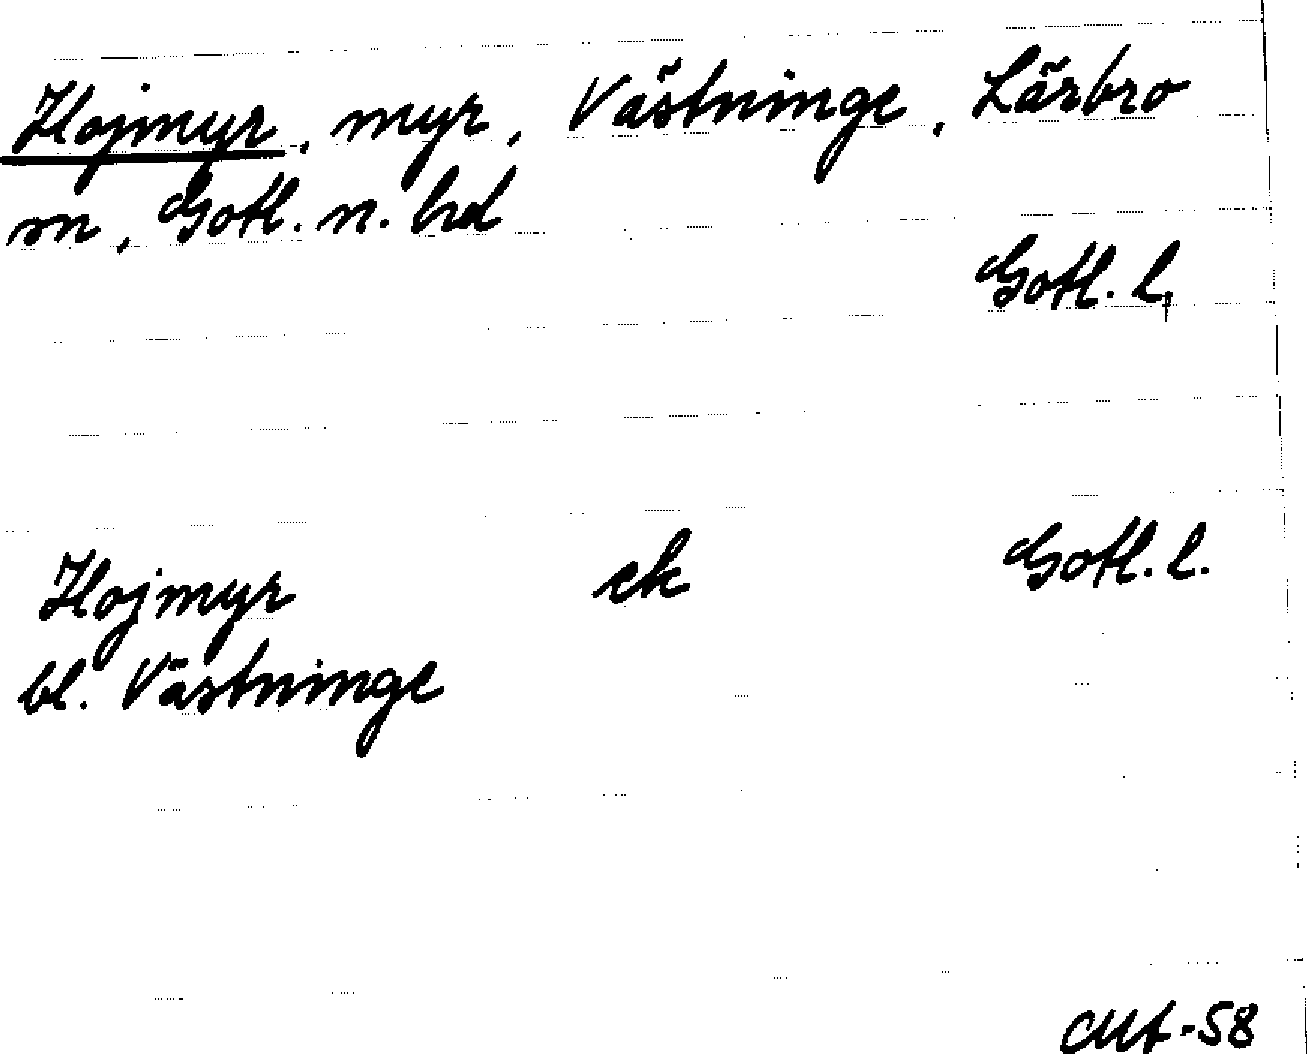 Hojmyr, myr, Västninge, Lärbro
sn, Gotl. n. hd
Gotl. l.
Hojmyr ek Gotl. l.
bl. Västninge
-58